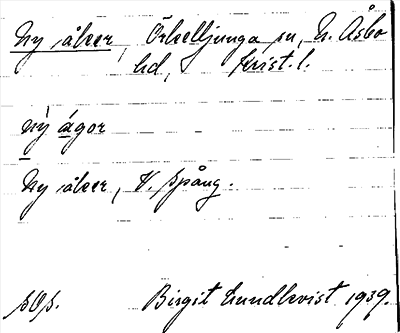 Ny åker, Örkelljunga sn, N. Åsbo
hd, Krist. l.
nỳ ágor
Ny åker, V. Spång.
sOs. Birgit Lundkvist 1939.